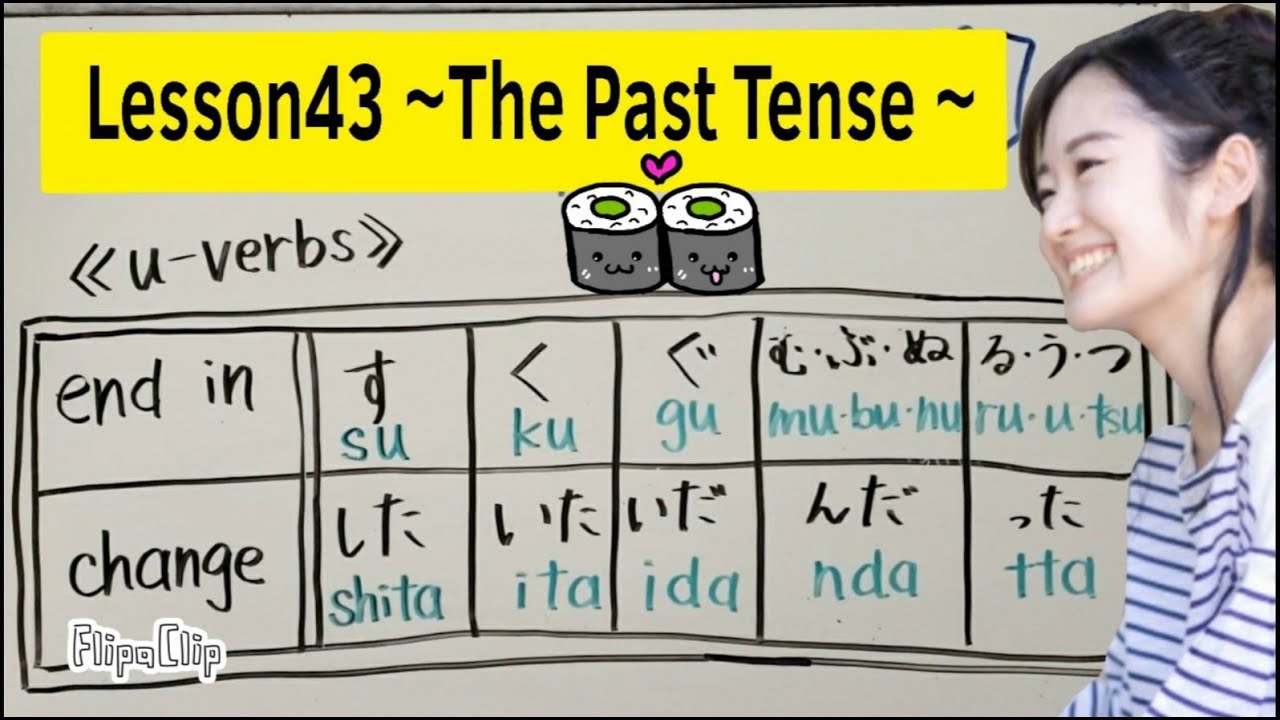 Lesson43 ~The Past Tense ~
《u-verbs》
end in す く ぐ む・ぶ・ぬ る・う・つ
su ku gu mu・bu・nu ru・u・tsu
change した いた いだ んだ った
shita ita ida nda tta
FlipaClip